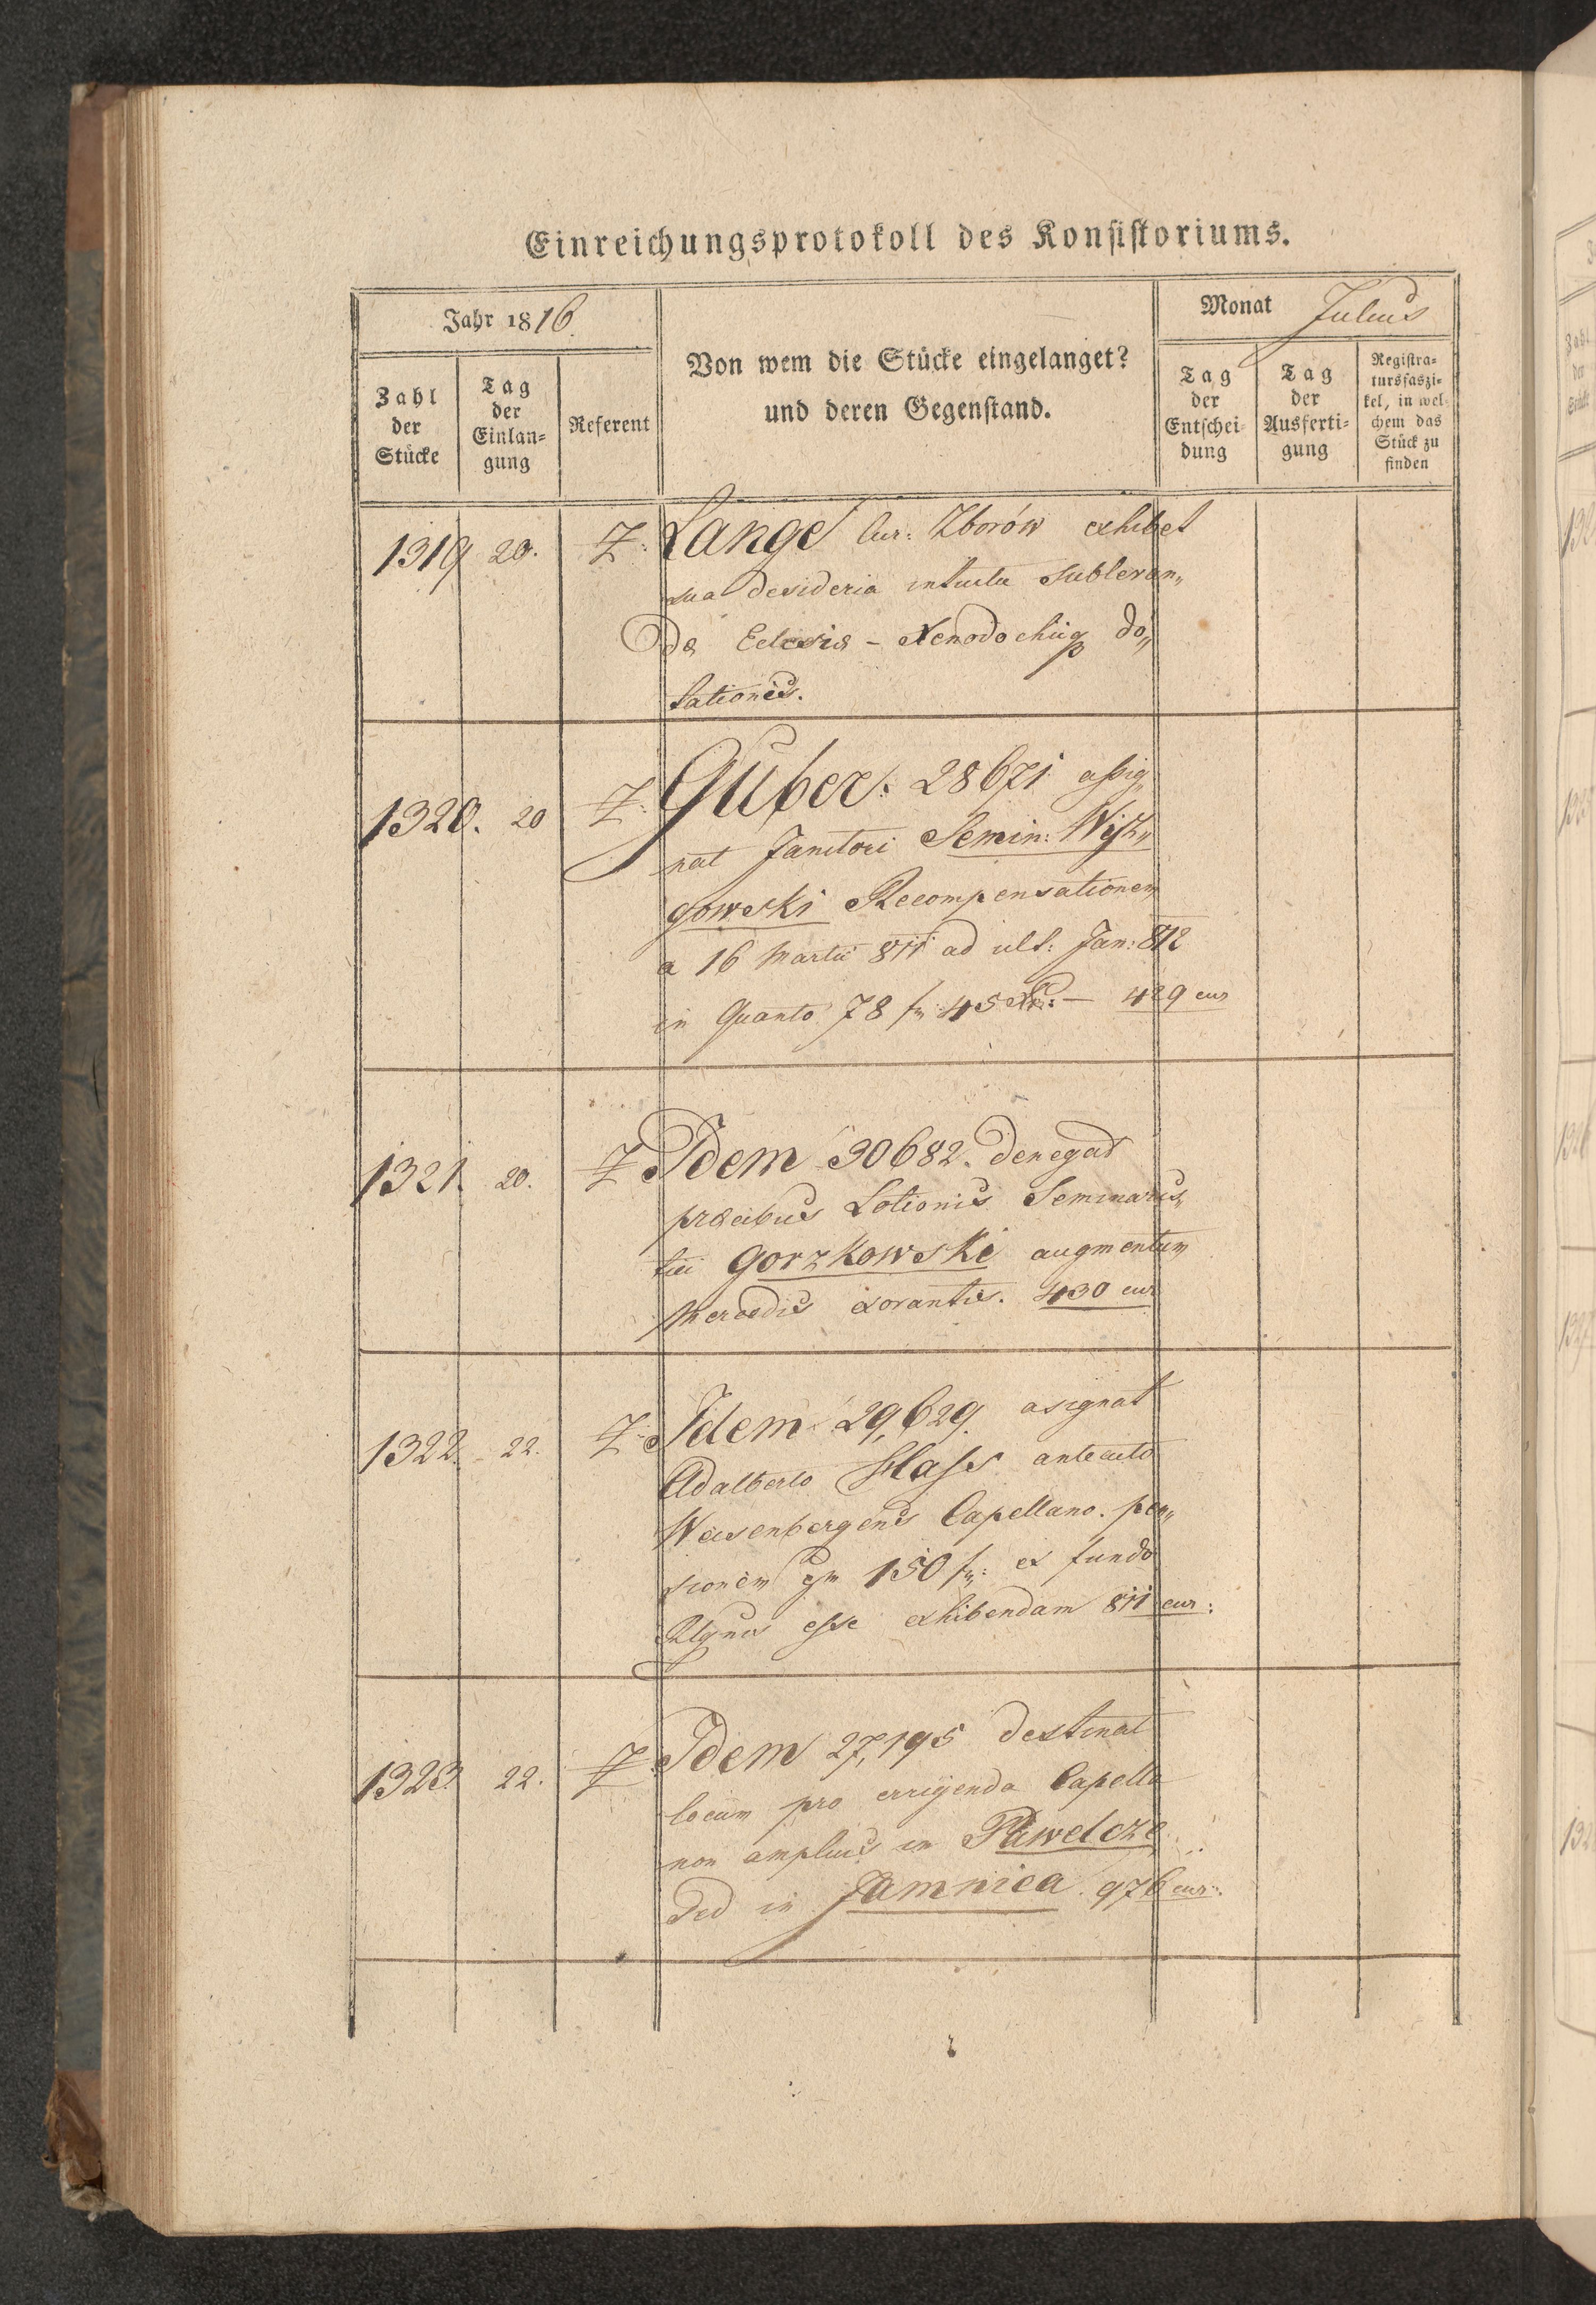 Einreichungsprotokoll des Konsistoriums.
Jahr 1816.
Monat Julius
Zahl der Stücke
Tag der Einlan=gung
Referent
Von wem die Stücke eingelanget?
und deren Gegenstand.
Tag der Entschei=dung
Tag der Ausferti=gung
Registra=tursfaszi=kel, in wel=chem das Stück zu finden
1319 20. Z: Lange Cur: Zborów exhibet
sua desideria intuitu sublevan„
dæ Eclesiæ - Xenodochiiq do„
tationis.
1320. 20 Z: Guber: 28671 assig„
nat Janitori Semin:
gowski Recompensationem
a 16 Martii 811 ad ult: Jan: 812
in Quanto 78 fr 45 Xr: — 429 cur
1321. 20. Z Idem 30682. denegat
præcibus Lotionis Seminaris„
tici Gorzkowski augmentum
Mercedis exorantis. 430 cur
1322. 22. Z: Idem 29,629. asignat
Adalberto Hass anteacto
Weisenbergens Capellano. pen„
sionem 150 fr: ex fundo
esse exhibendam 811 cur:
1323 22. Z: Idem 27,195 destinat
locum pro errigenda Capella
non amplius in Pawelcze
sed in Jamnica. 976 cur: